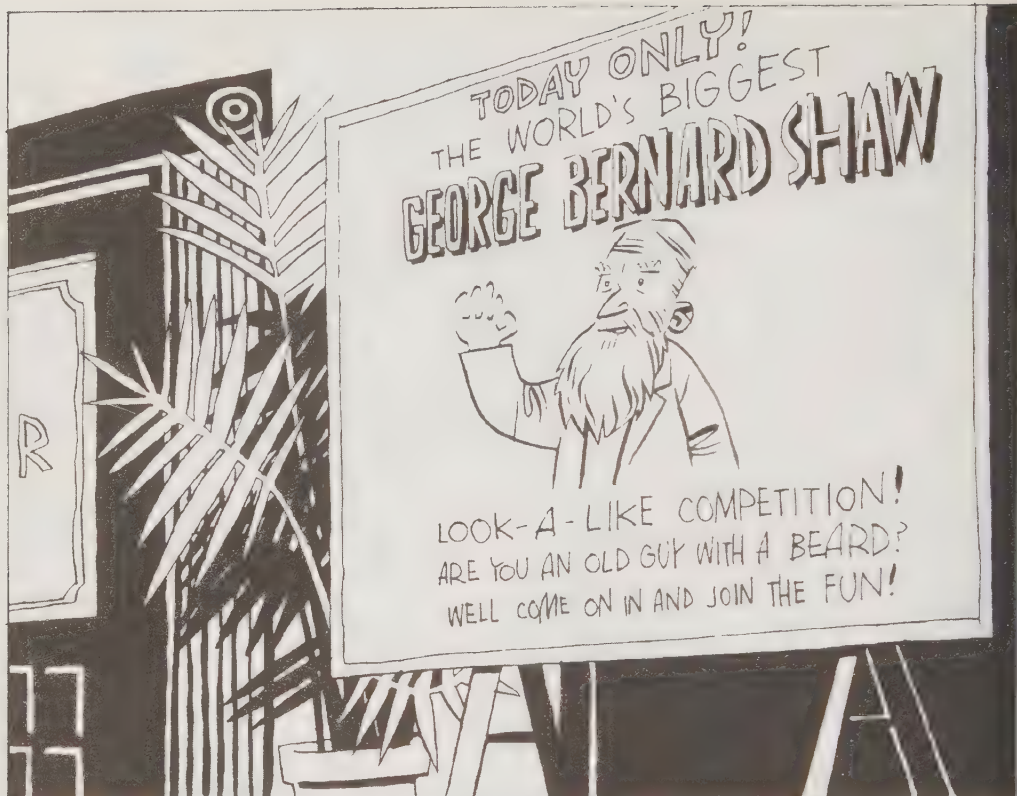 TODAY ONLY!
THE WORLD'S BIGGEST
GEORGE BERNARD SHAW
LOOK-A-LIKE COMPETITION!
ARE YOU AN OLD GUY WITH A BEARD?
WELL COME ON IN AND JOIN THE FUN!
R